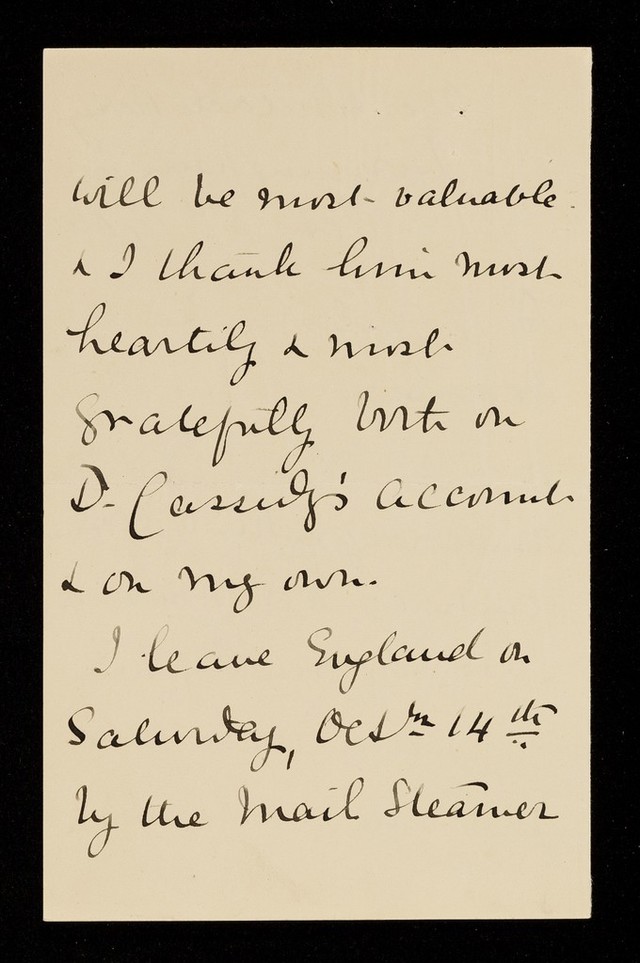 will be most valuable.
& I thank him most
heartily & most
gratefully both on
Dr Cassidy's account
& on my own.
I leave England on
Saturday, Octr 14th
by the Mail Steamer